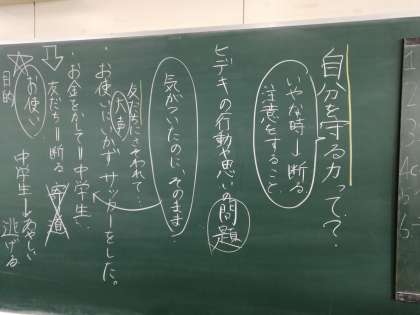 自分を守る力って?
いやな時→断る
注意をすること
ヒデキの行動や思いの問題
気がついたのに、そのまま…
友だちにさそわれて…
大声
・お使いにいかずサッカーをした。
・お金をかして=中学生、
友だち=断る
お使い
目的
中学生
逃げる